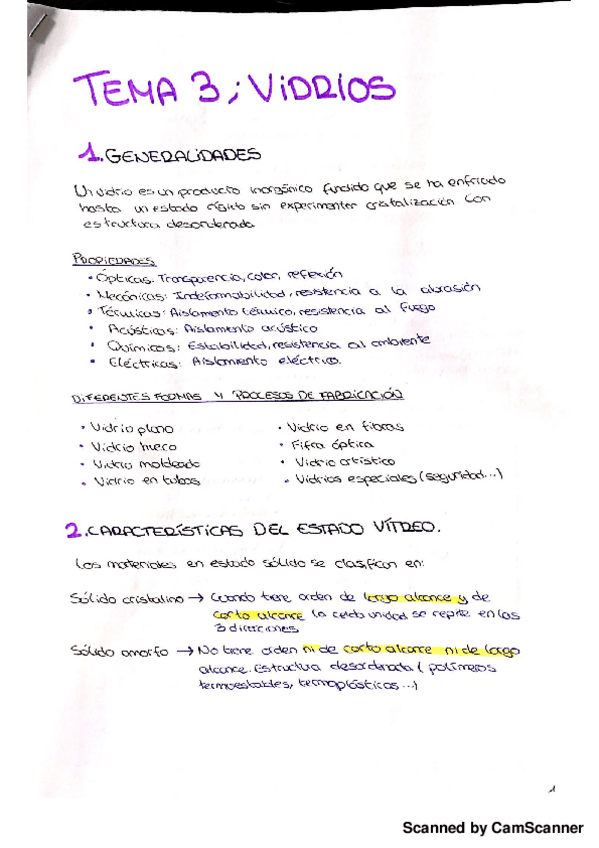 TEMA 3; VIDRIOS
1. GENERALIDADES
Un vidrio es un producto inorgánico fundido que se ha enfriado
hasta un estado rígido sin experimentar cristalización con
estructura desordenada
PROPIEDADES
• Ópticas: Transparencia, color, reflexión
• Mecánicas: Indeformabilidad, resistencia a la abrasión
• Térmicas: Aislamiento térmico, resistencia al fuego
• Acústicas: Aislamiento acústico
• Químicas: Estabilidad, resistencia al ambiente
• Eléctricas: Aislamiento eléctrico.
DIFERENTES FORMAS Y PROCESOS DE FABRICACIÓN
• Vidrio plano • Vidrio en fibras
• Vidrio hueco • Fifra óptica
• Vidrio moldeado • Vidrio artístico
• Vidrio en tubos • Vidrios especiales (seguridad...)
2. CARACTERÍSTICAS DEL ESTADO VÍTREO.
Los materiales en estado sólido se clasifican en:
Sólido cristalino → Cuando tiene orden de largo alcance y de
corto alcance la celda unidad se repite en las
3 direcciones
Sólido amorfo → No tiene orden ni de corto alcance ni de largo
alcance. Estructura desordenada (polímeros
termoestables, termoplásticos...)
1
Scanned by CamScanner